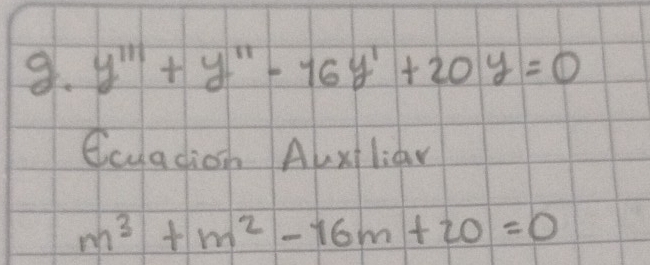 g. y''' + y'' - 16y' + 20y = 0
Ecuación Auxiliar
m³ + m² - 16m + 20 = 0